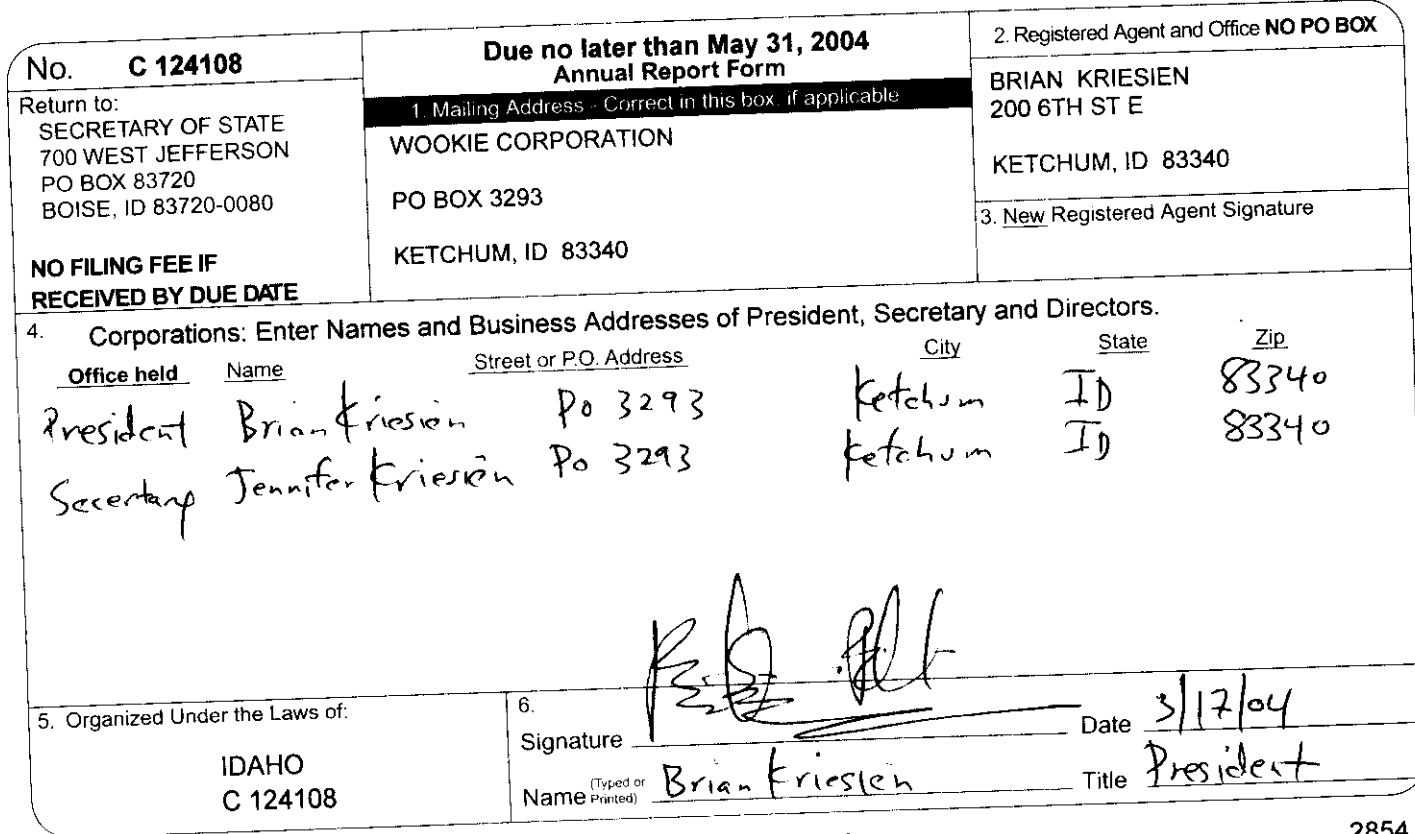 No. C 124108
Return to:
SECRETARY OF STATE
700 WEST JEFFERSON
PO BOX 83720
BOISE, ID 83720-0080
NO FILING FEE IF
RECEIVED BY DUE DATE
Due no later than May 31, 2004
Annual Report Form
1. Mailing Address - Correct in this box, if applicable
WOOKIE CORPORATION
PO BOX 3293
KETCHUM, ID 83340
2. Registered Agent and Office NO PO BOX
BRIAN KRIESIEN
200 6TH ST E
KETCHUM, ID 83340
3. New Registered Agent Signature
4. Corporations: Enter Names and Business Addresses of President, Secretary and Directors.
Office held Name Street or P.O. Address City State Zip
President Brian Kriesien Po 3293 Ketchum ID 83340
Secertary Jennifer Kriesien Po 3293 Ketchum ID 83340
5. Organized Under the Laws of:
IDAHO
C 124108
6.
Signature Date 3/17/04
Name (Typed or Printed) Brian Kriesien Title President
2854